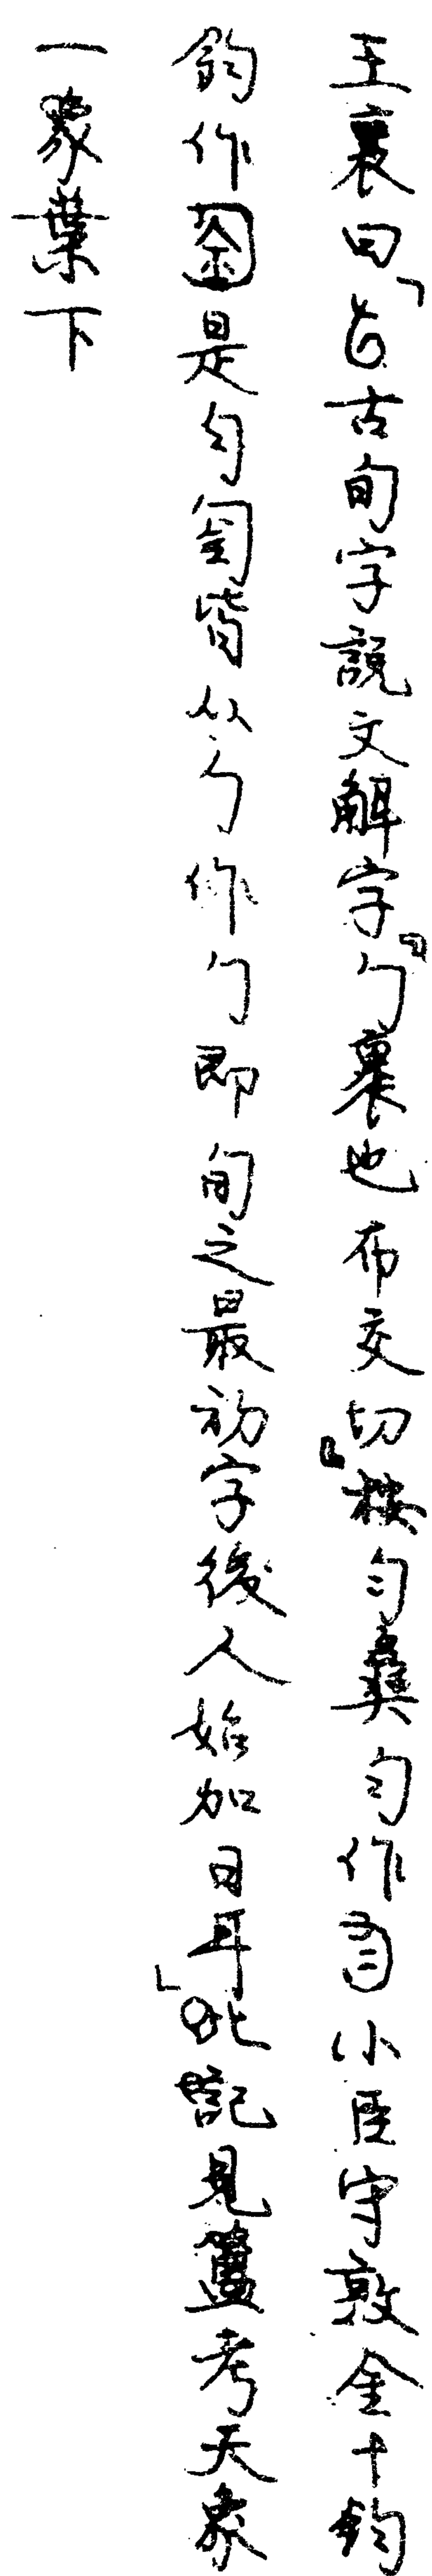 王襄曰「古旬字說文解字『勹裹也布交切』按勻彝勻作小臣守敦金十鈞
鈞作是勻㔬皆从勹作勹即旬之最初字後人始加日耳」此說見簠考天象
一象葉下